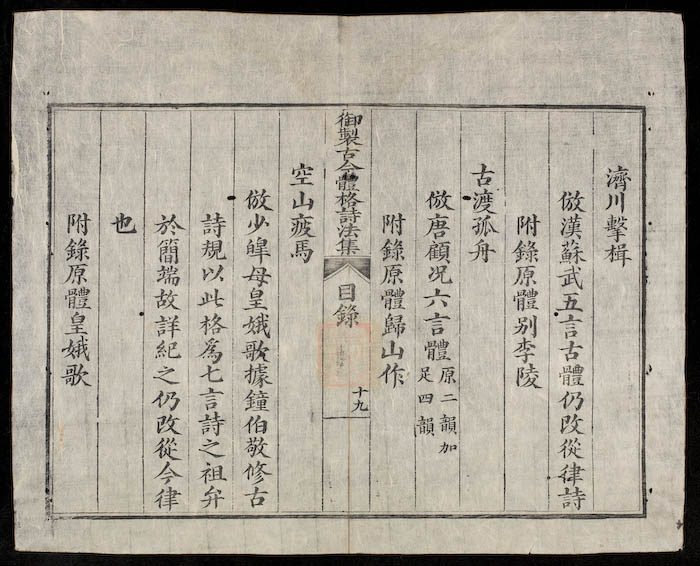 濟川擊楫
倣漢蘇武五言古體仍改從律詩
附錄原體別李陵
古渡孤舟
倣唐顧况六言體原二韻加足四韻
附錄原體歸山作
御製古今體格詩法集
目錄
十九
空山疲馬
倣少皡母皇娥歌據鐘伯敬修古
詩規以此格爲七言詩之祖弁
於簡端故詳紀之仍改從今律
也
附錄原體皇娥歌